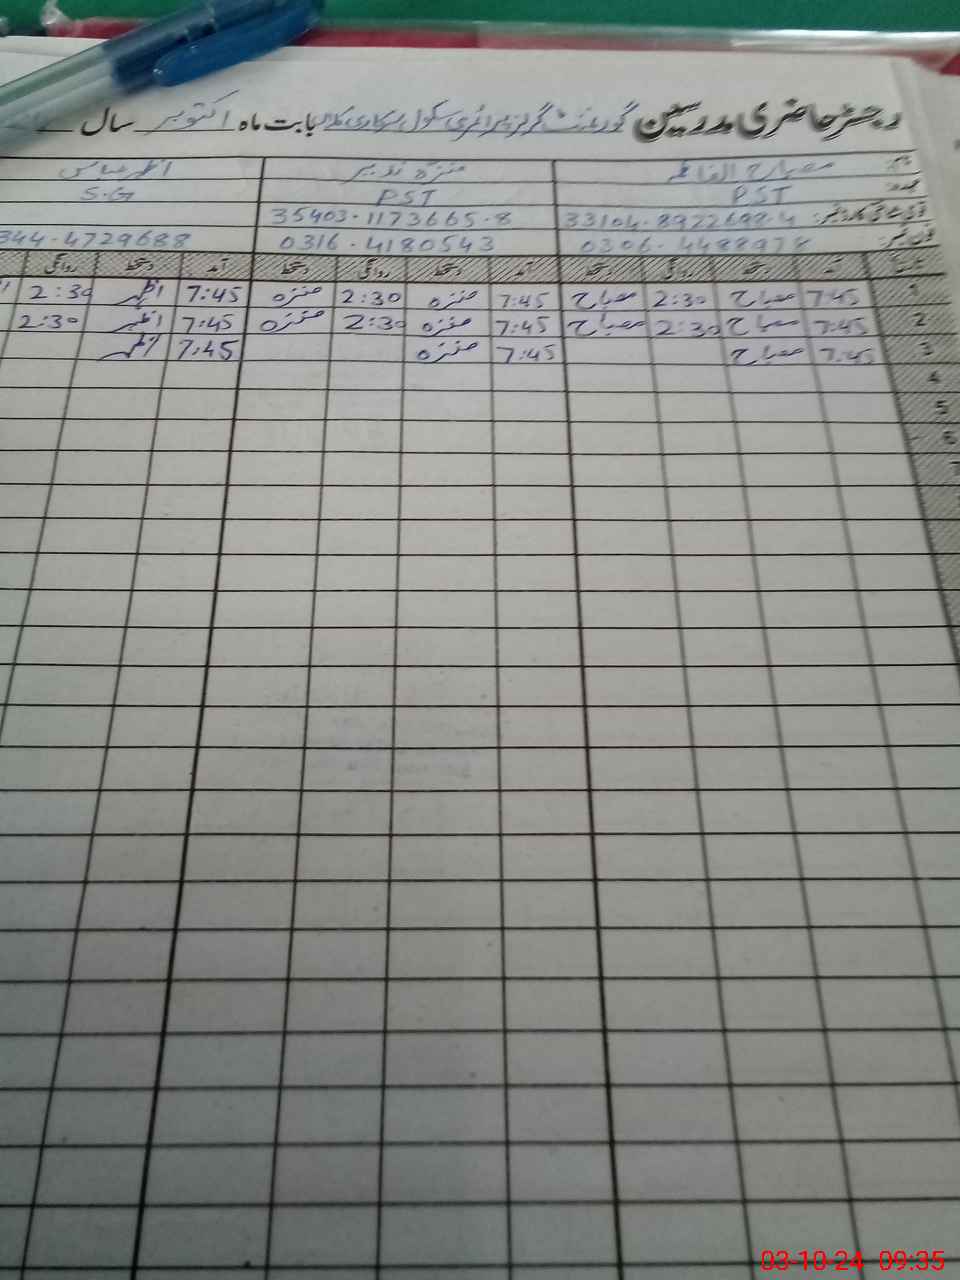 رجسٹر حاضری مدرسین گورنمنٹ گرلز پرائمری سکول بابت ماہ اکتوبر سال
نام: مصباح الفاطمہ منزہ نذیر اظہر عباس
عہدہ: PST PST S.G
قومی شناختی کارڈ نمبر: 33104-8922698-4 35403-1173665-8
فون نمبر: 0306-4488978 0316-4180543 344-4729688
تاریخ آمد دستخط روانگی دستخط آمد دستخط روانگی دستخط آمد دستخط روانگی
1 7:45 مصباح 2:30 مصباح 7:45 منزہ 2:30 منزہ 7:45 اظہر 2:30
2 7:45 مصباح 2:30 مصباح 7:45 منزہ 2:30 منزہ 7:45 اظہر 2:30
3 7:45 مصباح 7:45 منزہ 7:45 اظہر
4
5
6
7
03-10-24 09:35